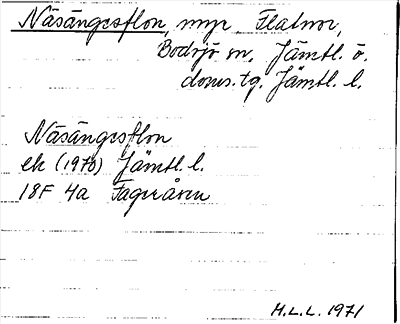 Näsängesflon, myr, Flatnor,
Bodsjö sn, Jämtl. ö.
doms. tg. Jämtl. l.
Näsängesflon
ek (1970) Jämtl. l.
18F 4a Fageråsen
H.L.L. 1971